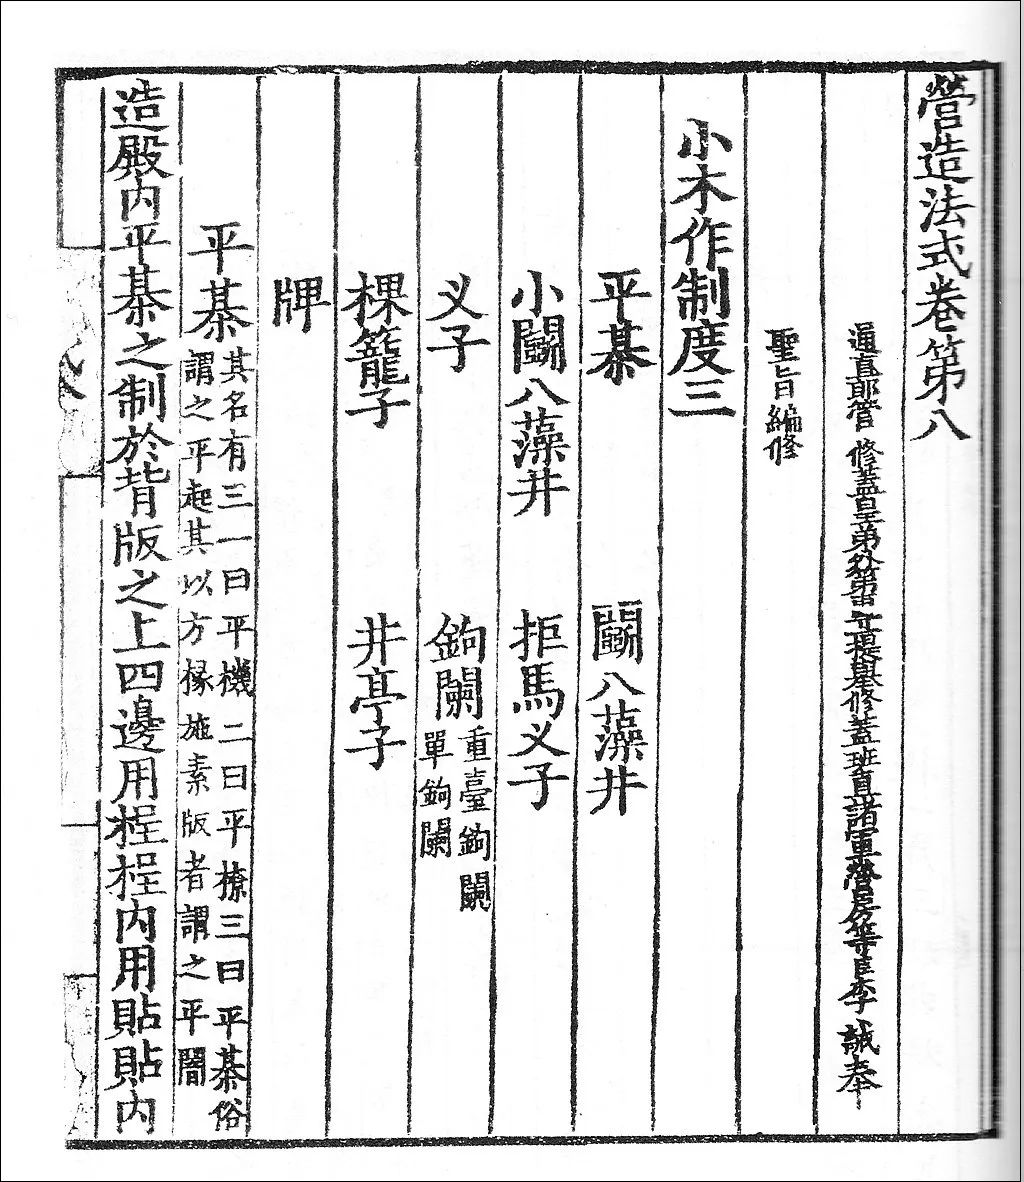 營造法式卷第八
通直郎管 修蓋皇弟外第專一提舉修蓋班直諸軍營房等臣李 誡奉
聖旨編修
小木作制度三
平棊 鬭八藻井
小鬭八藻井 拒馬义子
义子 鉤闌重臺鉤闌
單鉤闌
棵籠子 井亭子
牌
平棊其名有三一曰平機二曰平橑三曰平棊俗
謂之平起其以方椽施素版者謂之平闇
造殿内平棊之制於背版之上四邊用桯桯内用貼貼内